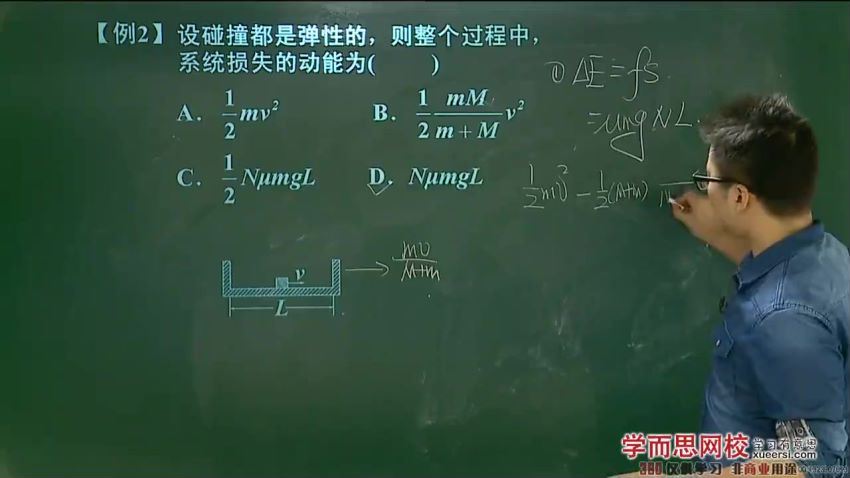 【例2】设碰撞都是弹性的，则整个过程中，
系统损失的动能为( )
A. 1/2 mv²
B. 1/2 mM/(m+M) v²
C. 1/2 NμmgL
D. NμmgL
① ΔE = fS
= μmgNL.
1/2 mv² - 1/2 (M+m)
mv/(M+m)
v
L
学而思网校 学习有意思
xueersi.com
仅供学习 非商业用途